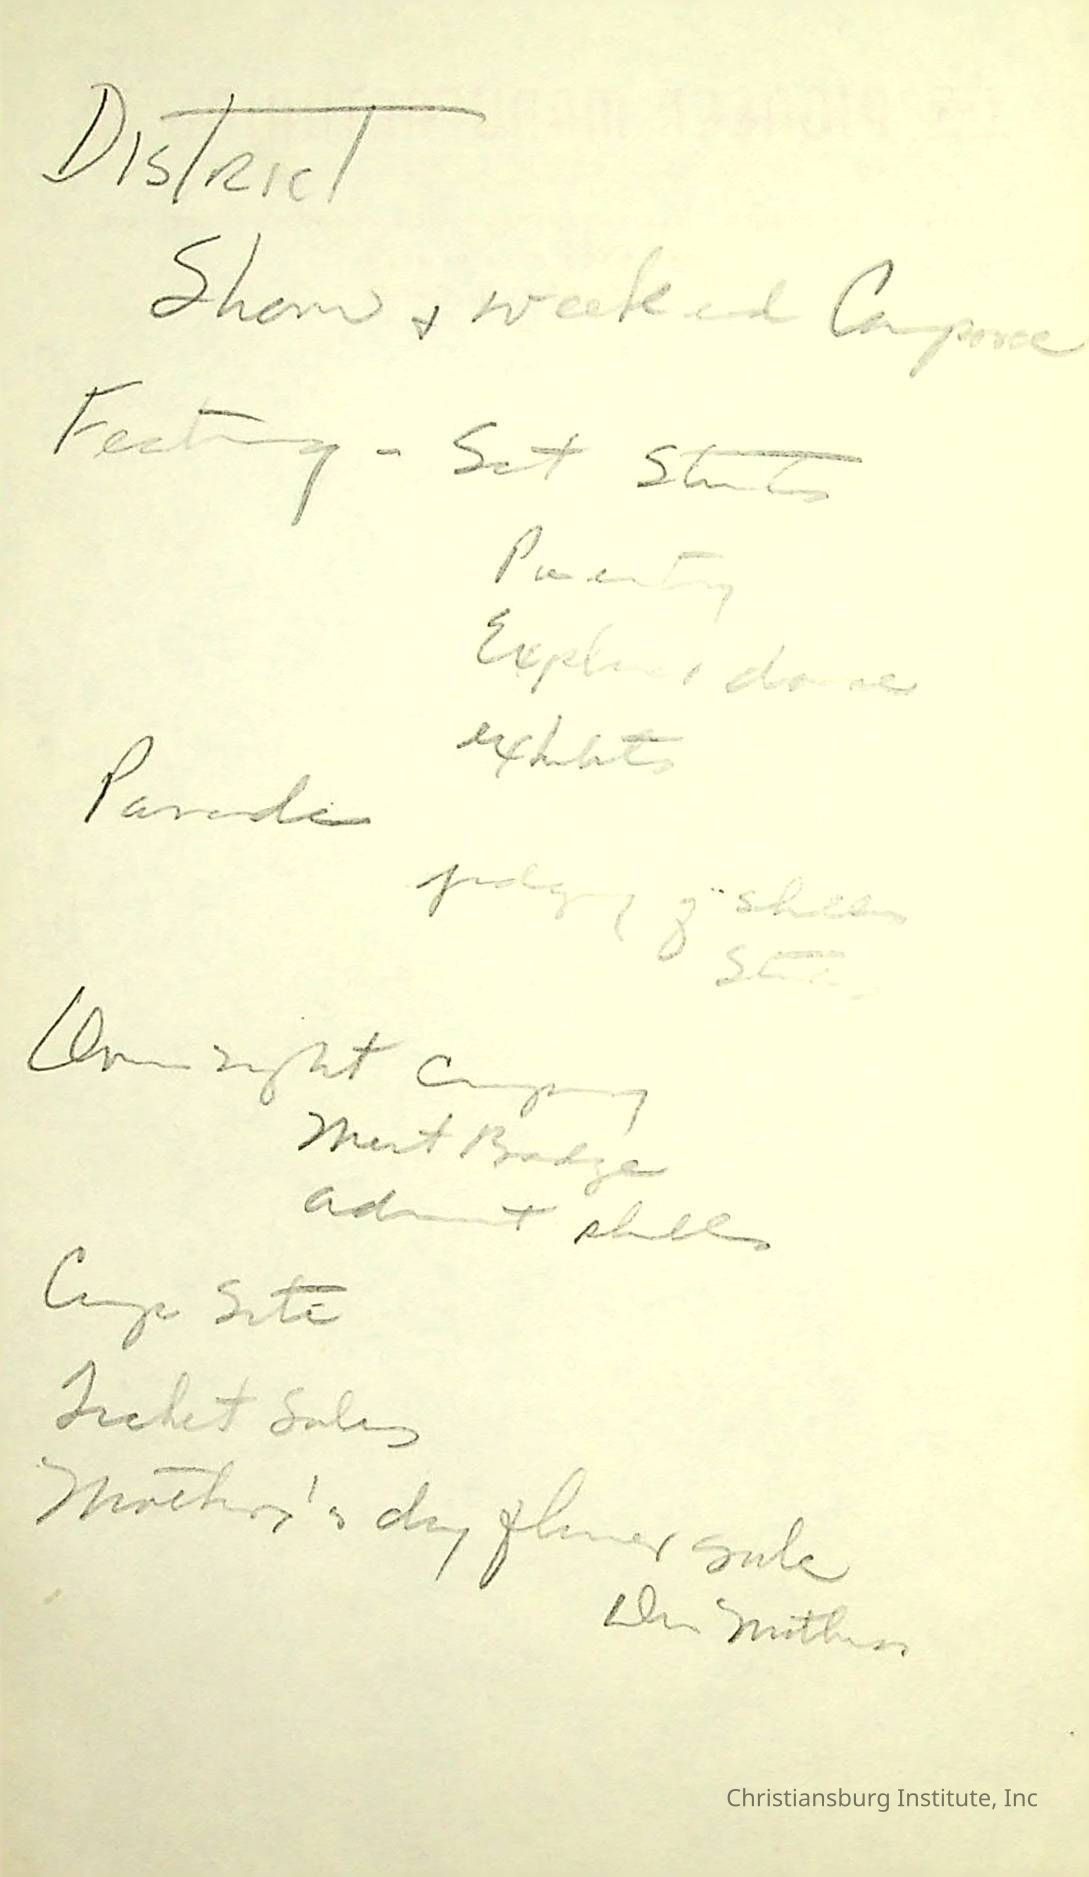 District
Show & weekend Camporee
Featuring - Set Stunts
Pageantry
Explorer dance
exhibits
Parade
judging of skills
Stunts
Overnight Camping
Merit Badge
advancement skills
Camp Site
Ticket Sales
Mother's day flower sale
Den Mothers
Christiansburg Institute, Inc